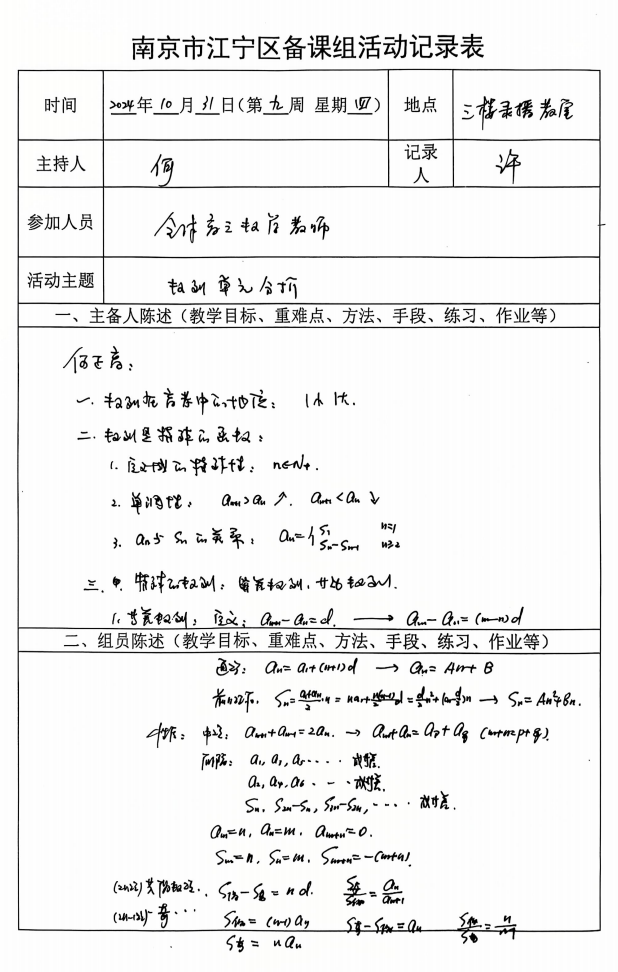 南京市江宁区备课组活动记录表
时间 2024年 10 月 31 日(第 九 周 星期 四) 地点 三楼录播教室
主持人 何 记录人 许
参加人员 全体高三数学教师
活动主题 数列单元分析
一、主备人陈述（教学目标、重难点、方法、手段、练习、作业等）
一. 数列在高考中的地位：
二. 数列是特殊的函数：
1. 定义域的特殊性： n∈N+.
2. 单调性： aₙ₊₁>aₙ ↗. aₙ₊₁<aₙ ↘
3. aₙ与 Sₙ 的关系： aₙ={S₁ n=1
Sₙ-Sₙ₋₁ n≥2
三. 特殊的数列：等差数列，等比数列.
1. 等差数列：定义： aₙ₊₁-aₙ=d. → aₘ-aₙ=(m-n)d
二、组员陈述（教学目标、重难点、方法、手段、练习、作业等）
通项： aₙ=a₁+(n-1)d → aₙ=An+B
前n项和. → Sₙ=An²+Bn.
性质： 中项： aₙ₊₁+aₙ₋₁=2aₙ. → aₘ+aₙ=aₚ+a_q (m+n=p+q).
间隔： a₁, a₃, a₅ ···· 成等差.
a₂, a₄, a₆ ··· 成等差.
Sₙ, S₂ₙ-Sₙ, S₃ₙ-S₂ₙ, ···· 成等差.
aₘ=n, aₙ=m, aₘ₊ₙ=0.
Sₘ=n, Sₙ=m, Sₘ₊ₙ=-(m+n).
S偶-S奇=nd. S奇/S偶=aₙ/aₙ₊₁
S偶=(n-1)aₙ S奇-S偶=aₙ
S奇=naₙ